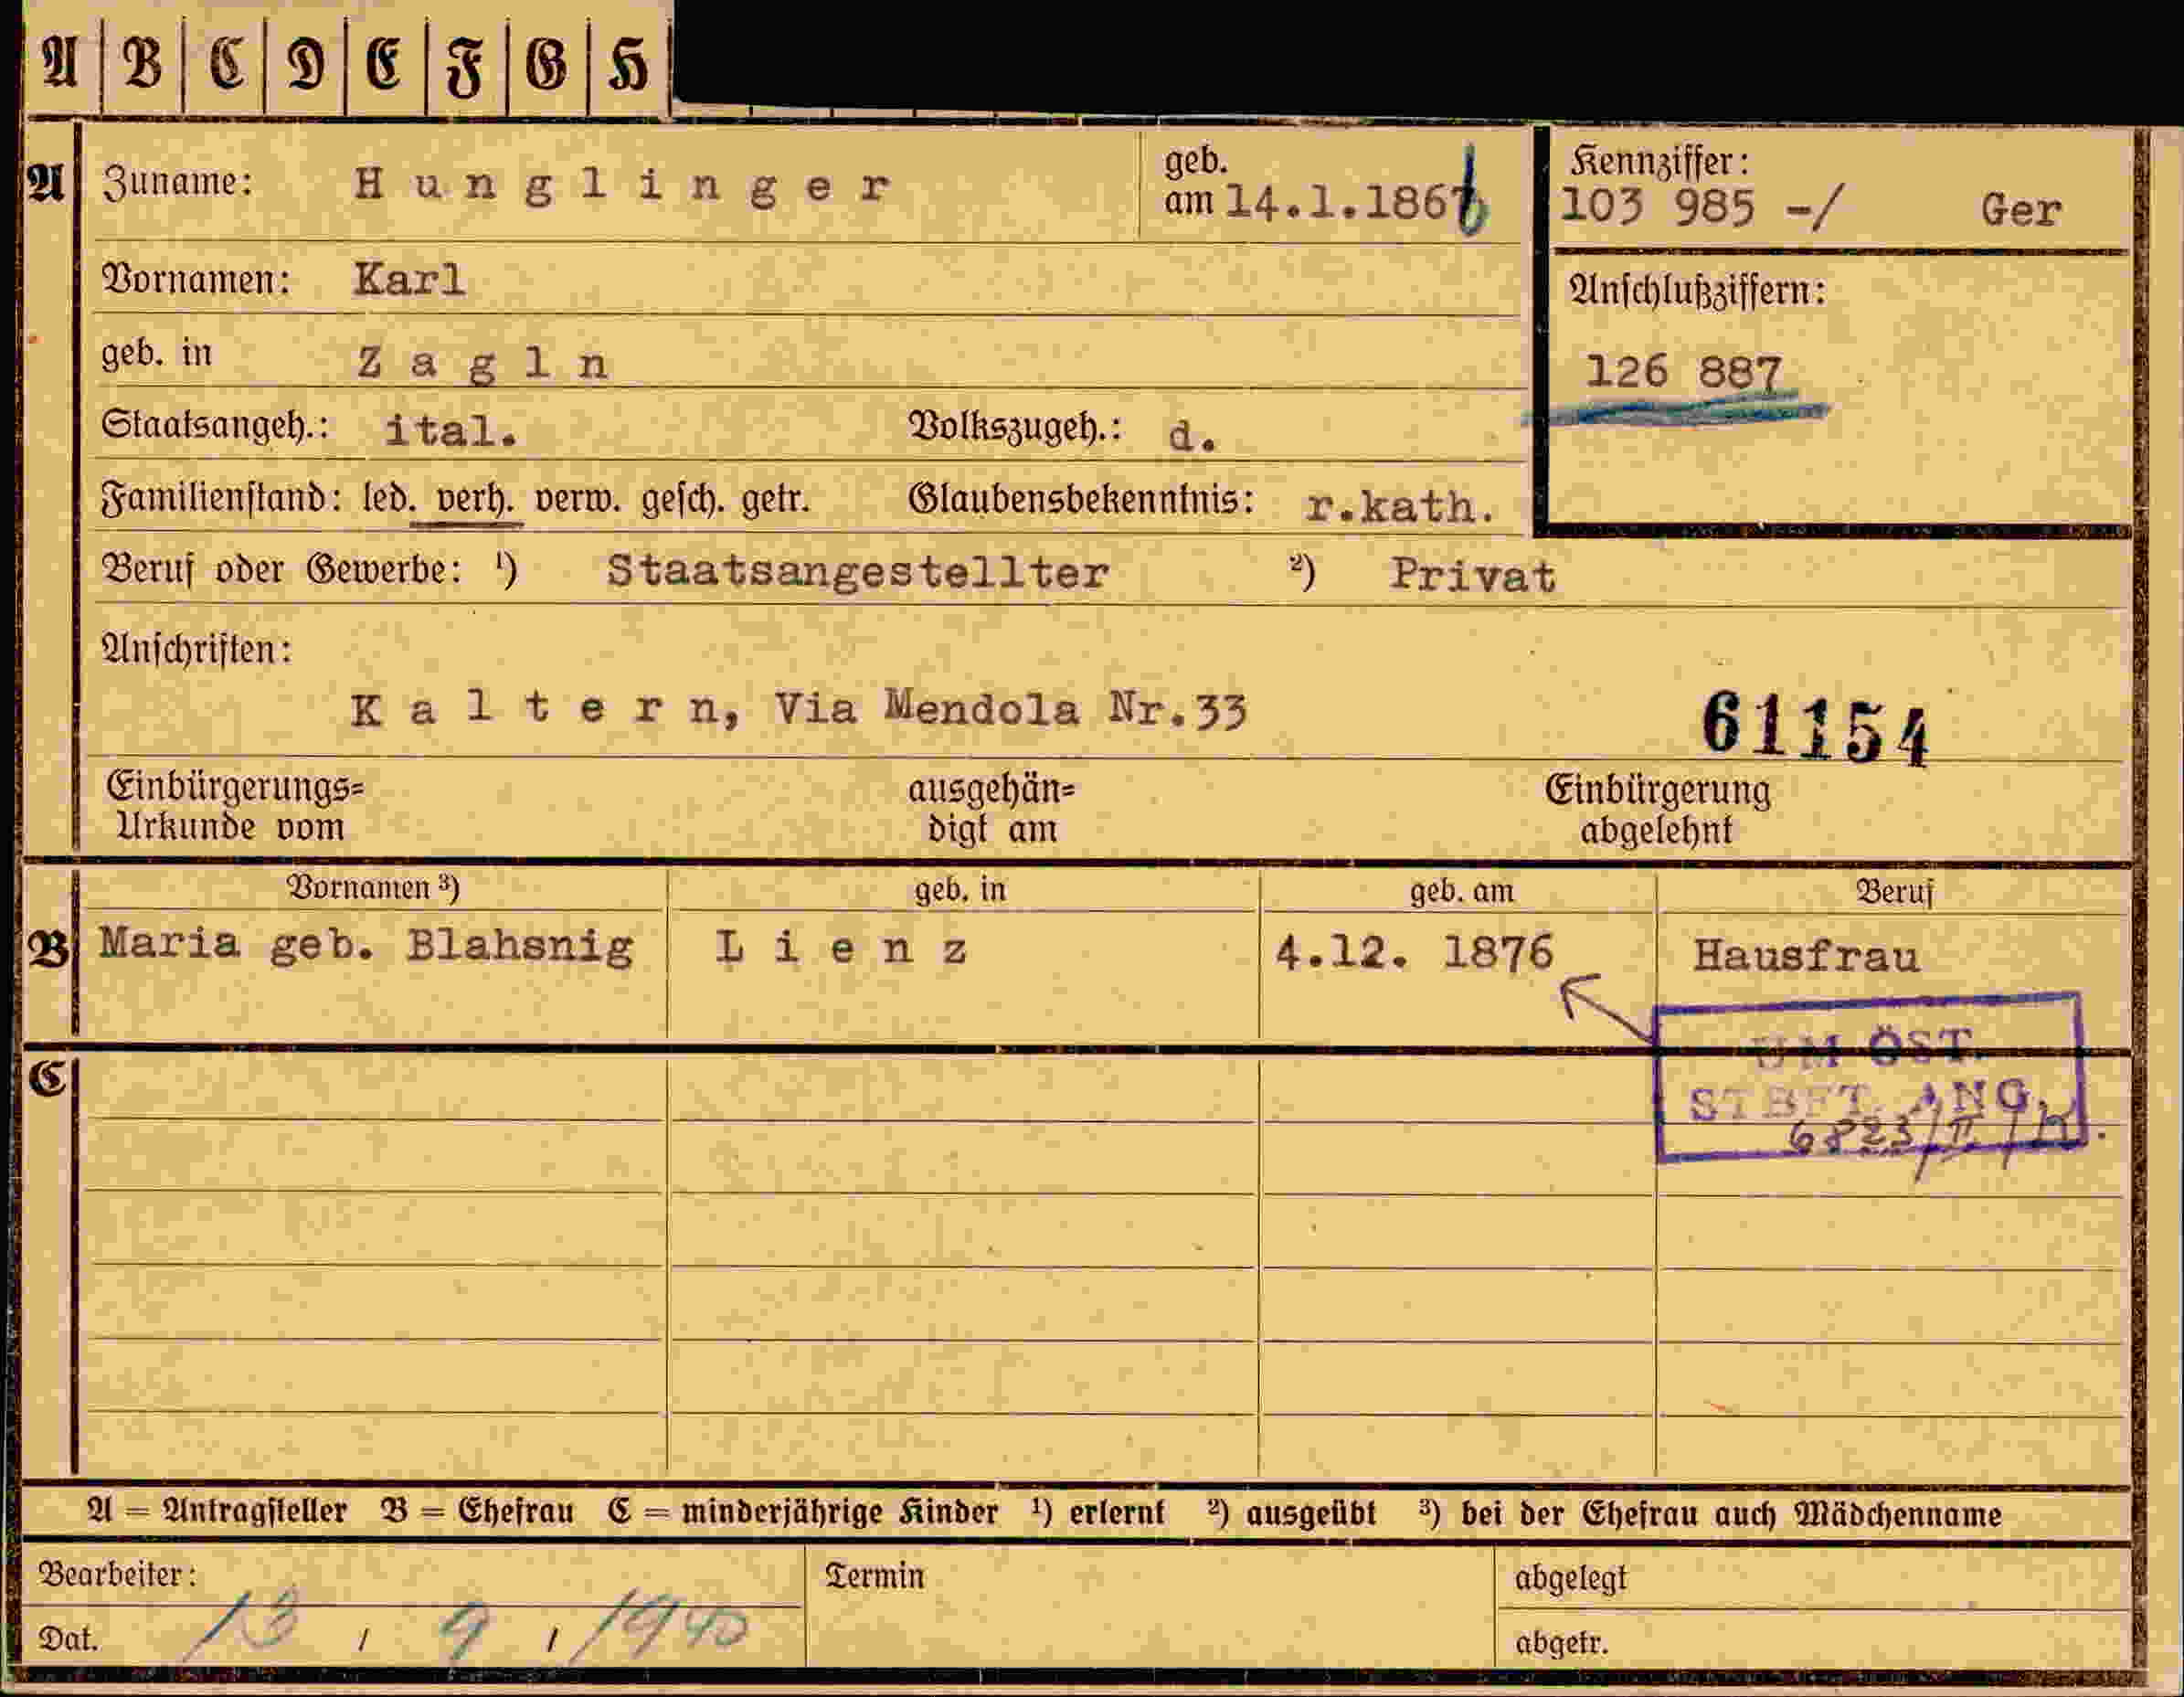 A B C D E F G H
A Zuname: Hunglinger geb. am 14.1.1866 Kennziffer: 103 985 -/ Ger
Vornamen: Karl
Anschlußziffern:
geb. in Zagln
126 887
Staatsangeh.: ital. Volkszugeh.: d.
Familienstand: led. verh. verw. gesch. getr. Glaubensbekenntnis: r.kath.
Beruf oder Gewerbe: ¹) Staatsangestellter ²) Privat
Anschriften:
Kaltern, Via Mendola Nr.33
61154
Einbürgerungs= ausgehän= Einbürgerung
Urkunde vom digt am abgelehnt
Vornamen ³) geb. in geb. am Beruf
B Maria geb. Blahsnig Lienz 4.12. 1876 Hausfrau
UM ÖST.
C
STBFT. ANG.
6823/II/
A = Antragsteller B = Ehefrau C = minderjährige Kinder ¹) erlernt ²) ausgeübt ³) bei der Ehefrau auch Mädchenname
Bearbeiter: Termin abgelegt
Dat. 13 / 9 / 1940 abgetr.